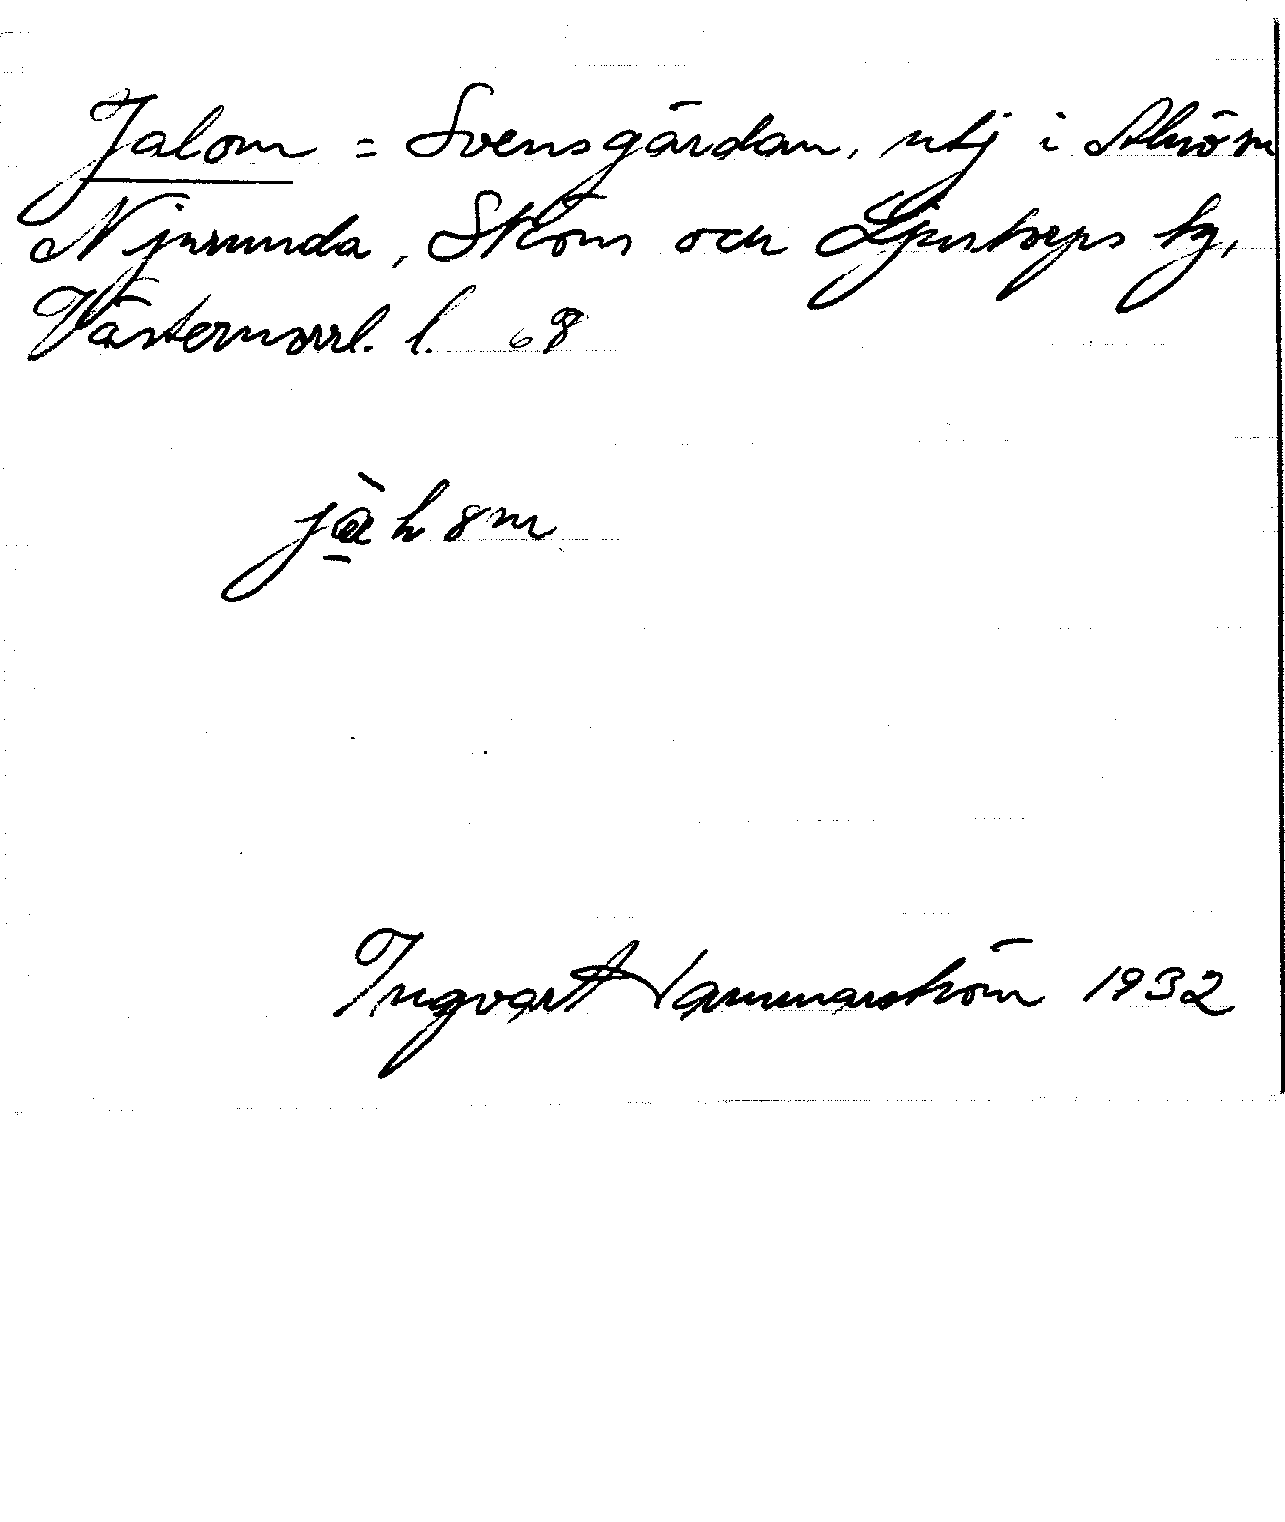 Jalom = Svensgårdan, utj i Alnöm
Njurunda, Sköns och Ljustorps tg,
Västernorrl. l. 68
Ingvart Hammarström 1932